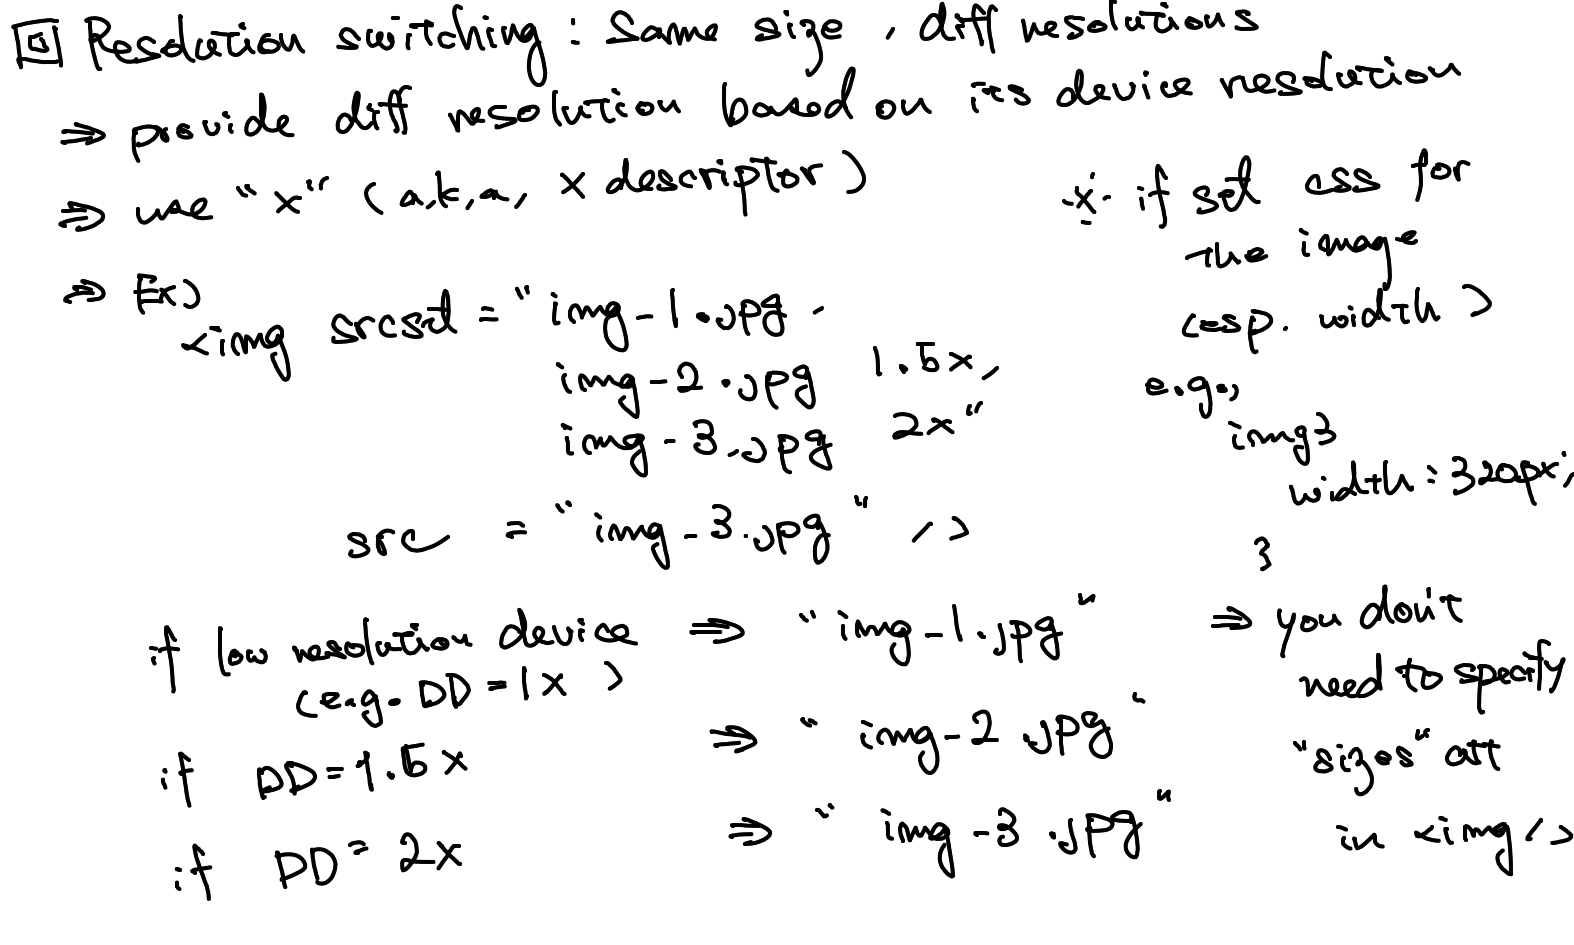 Resolution switching : Same size , diff resolutions
⇒ provide diff resolution based on its device resolution
⇒ use "x" ( a.k.a, x descriptor )
⇒ Ex)
<img srcset = "img-1.jpg ,
img-2.jpg 1.5x,
img-3.jpg 2x"
src = "img-3.jpg" />
if low resolution device ⇒ "img-1.jpg"
(e.g. DD = 1x )
if DD = 1.5x ⇒ "img-2.jpg"
if DD = 2x ⇒ "img-3.jpg"
※ if set css for
the image
(esp. width )
e.g.,
img {
width : 320px;
}
⇒ you don't
need to specify
"sizes" att
in <img />